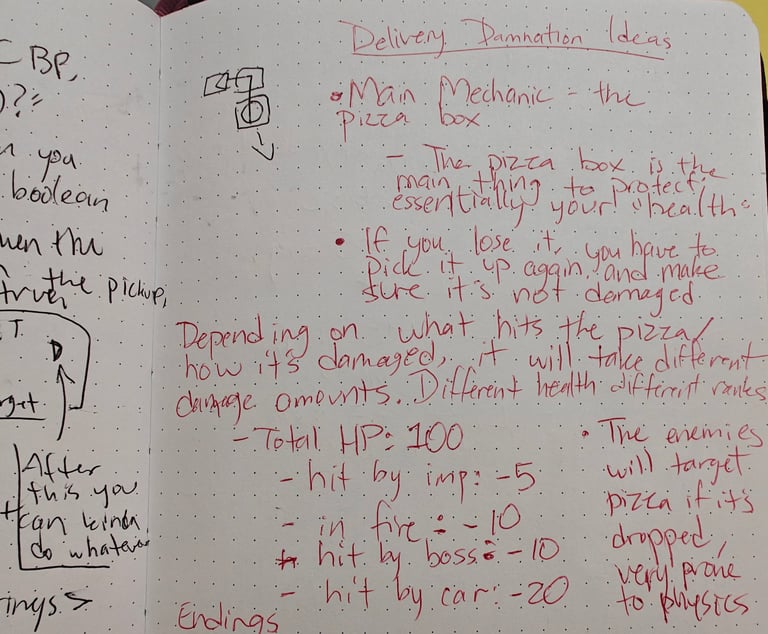 BP,
)?=
n you
boolean
when the
the pickup,
T
D
rget
After
this you
can kinda
do whatever
ings >
Delivery Damnation Ideas
• Main Mechanic - the
pizza box
- The pizza box is the
main thing to protect,
essentially your "health"
• If you lose it, you have to
pick it up again and make
sure it's not damaged.
Depending on what hits the pizza/
how it's damaged, it will take different
damage amounts. Different health different ranks
- Total HP: 100
- hit by imp: -5
- in fire: -10
- hit by boss: -10
- hit by car: -20
• The enemies
will target
pizza if it's
dropped,
very prone
to physics
Endings